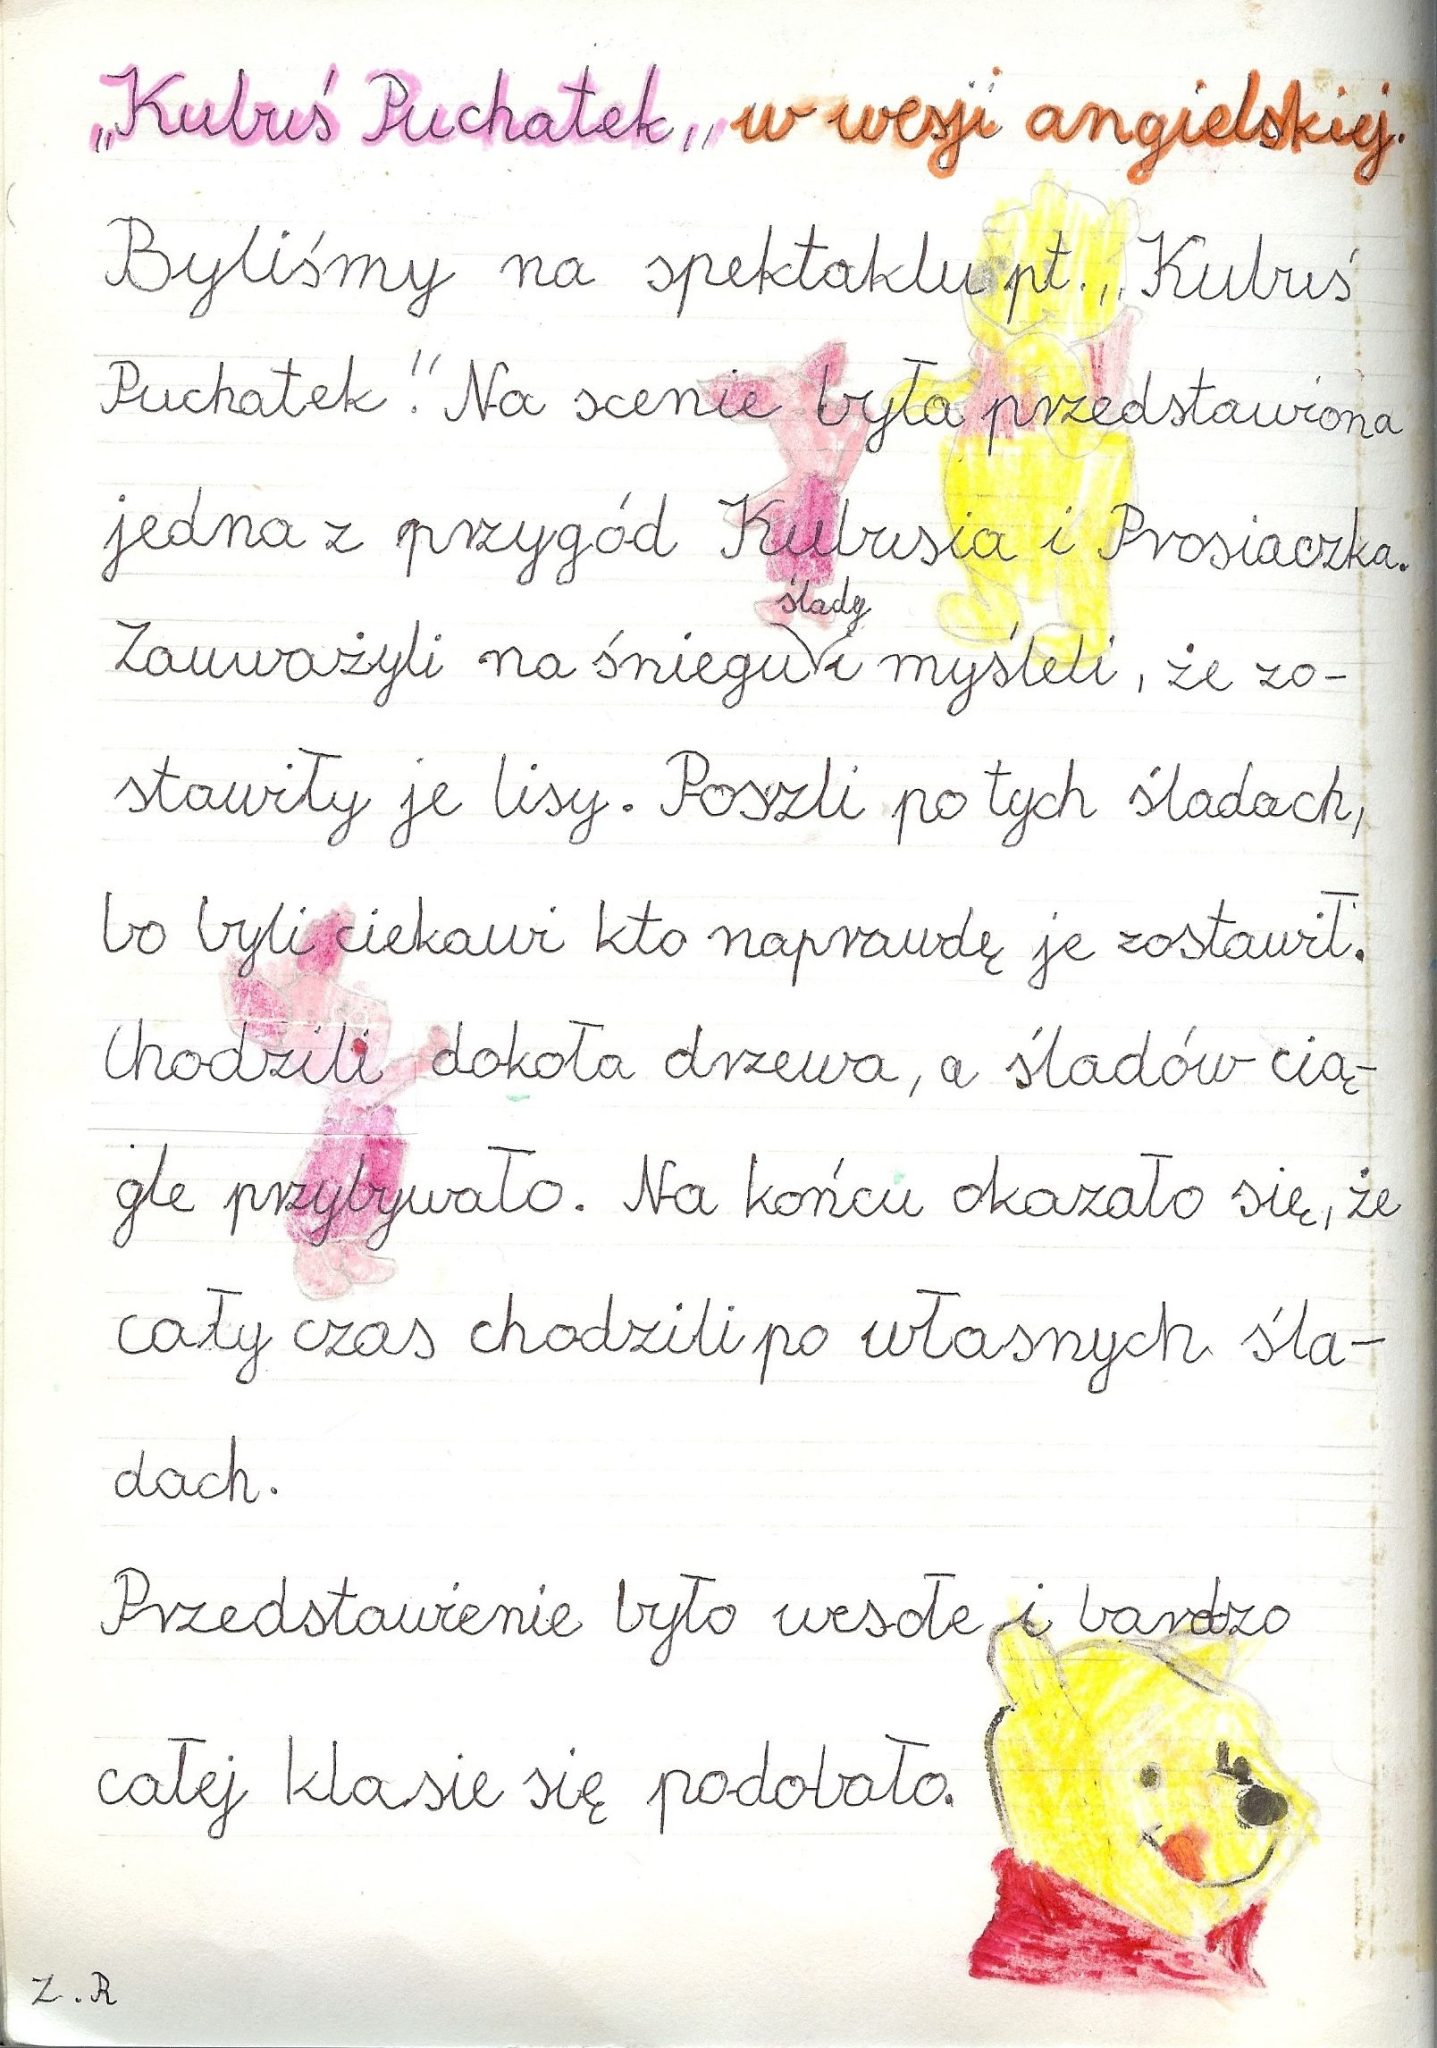 „Kubuś Puchatek„ w wesji angielskiej.
Byliśmy na spektaklu pt. „Kubuś
Puchatek." Na scenie była przedstawiona
jedna z przygód Kubusia i Prosiaczka.
ślady
Zauważyli na śniegu i myśleli, że zo-
stawiły je lisy. Poszli po tych śladach,
bo byli ciekawi kto naprawdę je zostawił.
Chodzili dokoła drzewa, a śladów cią-
gle przybywało. Na końcu okazało się, że
cały czas chodzili po własnych śla-
dach.
Przedstawienie było wesołe i bardzo
całej klasie się podobało.
Z.R